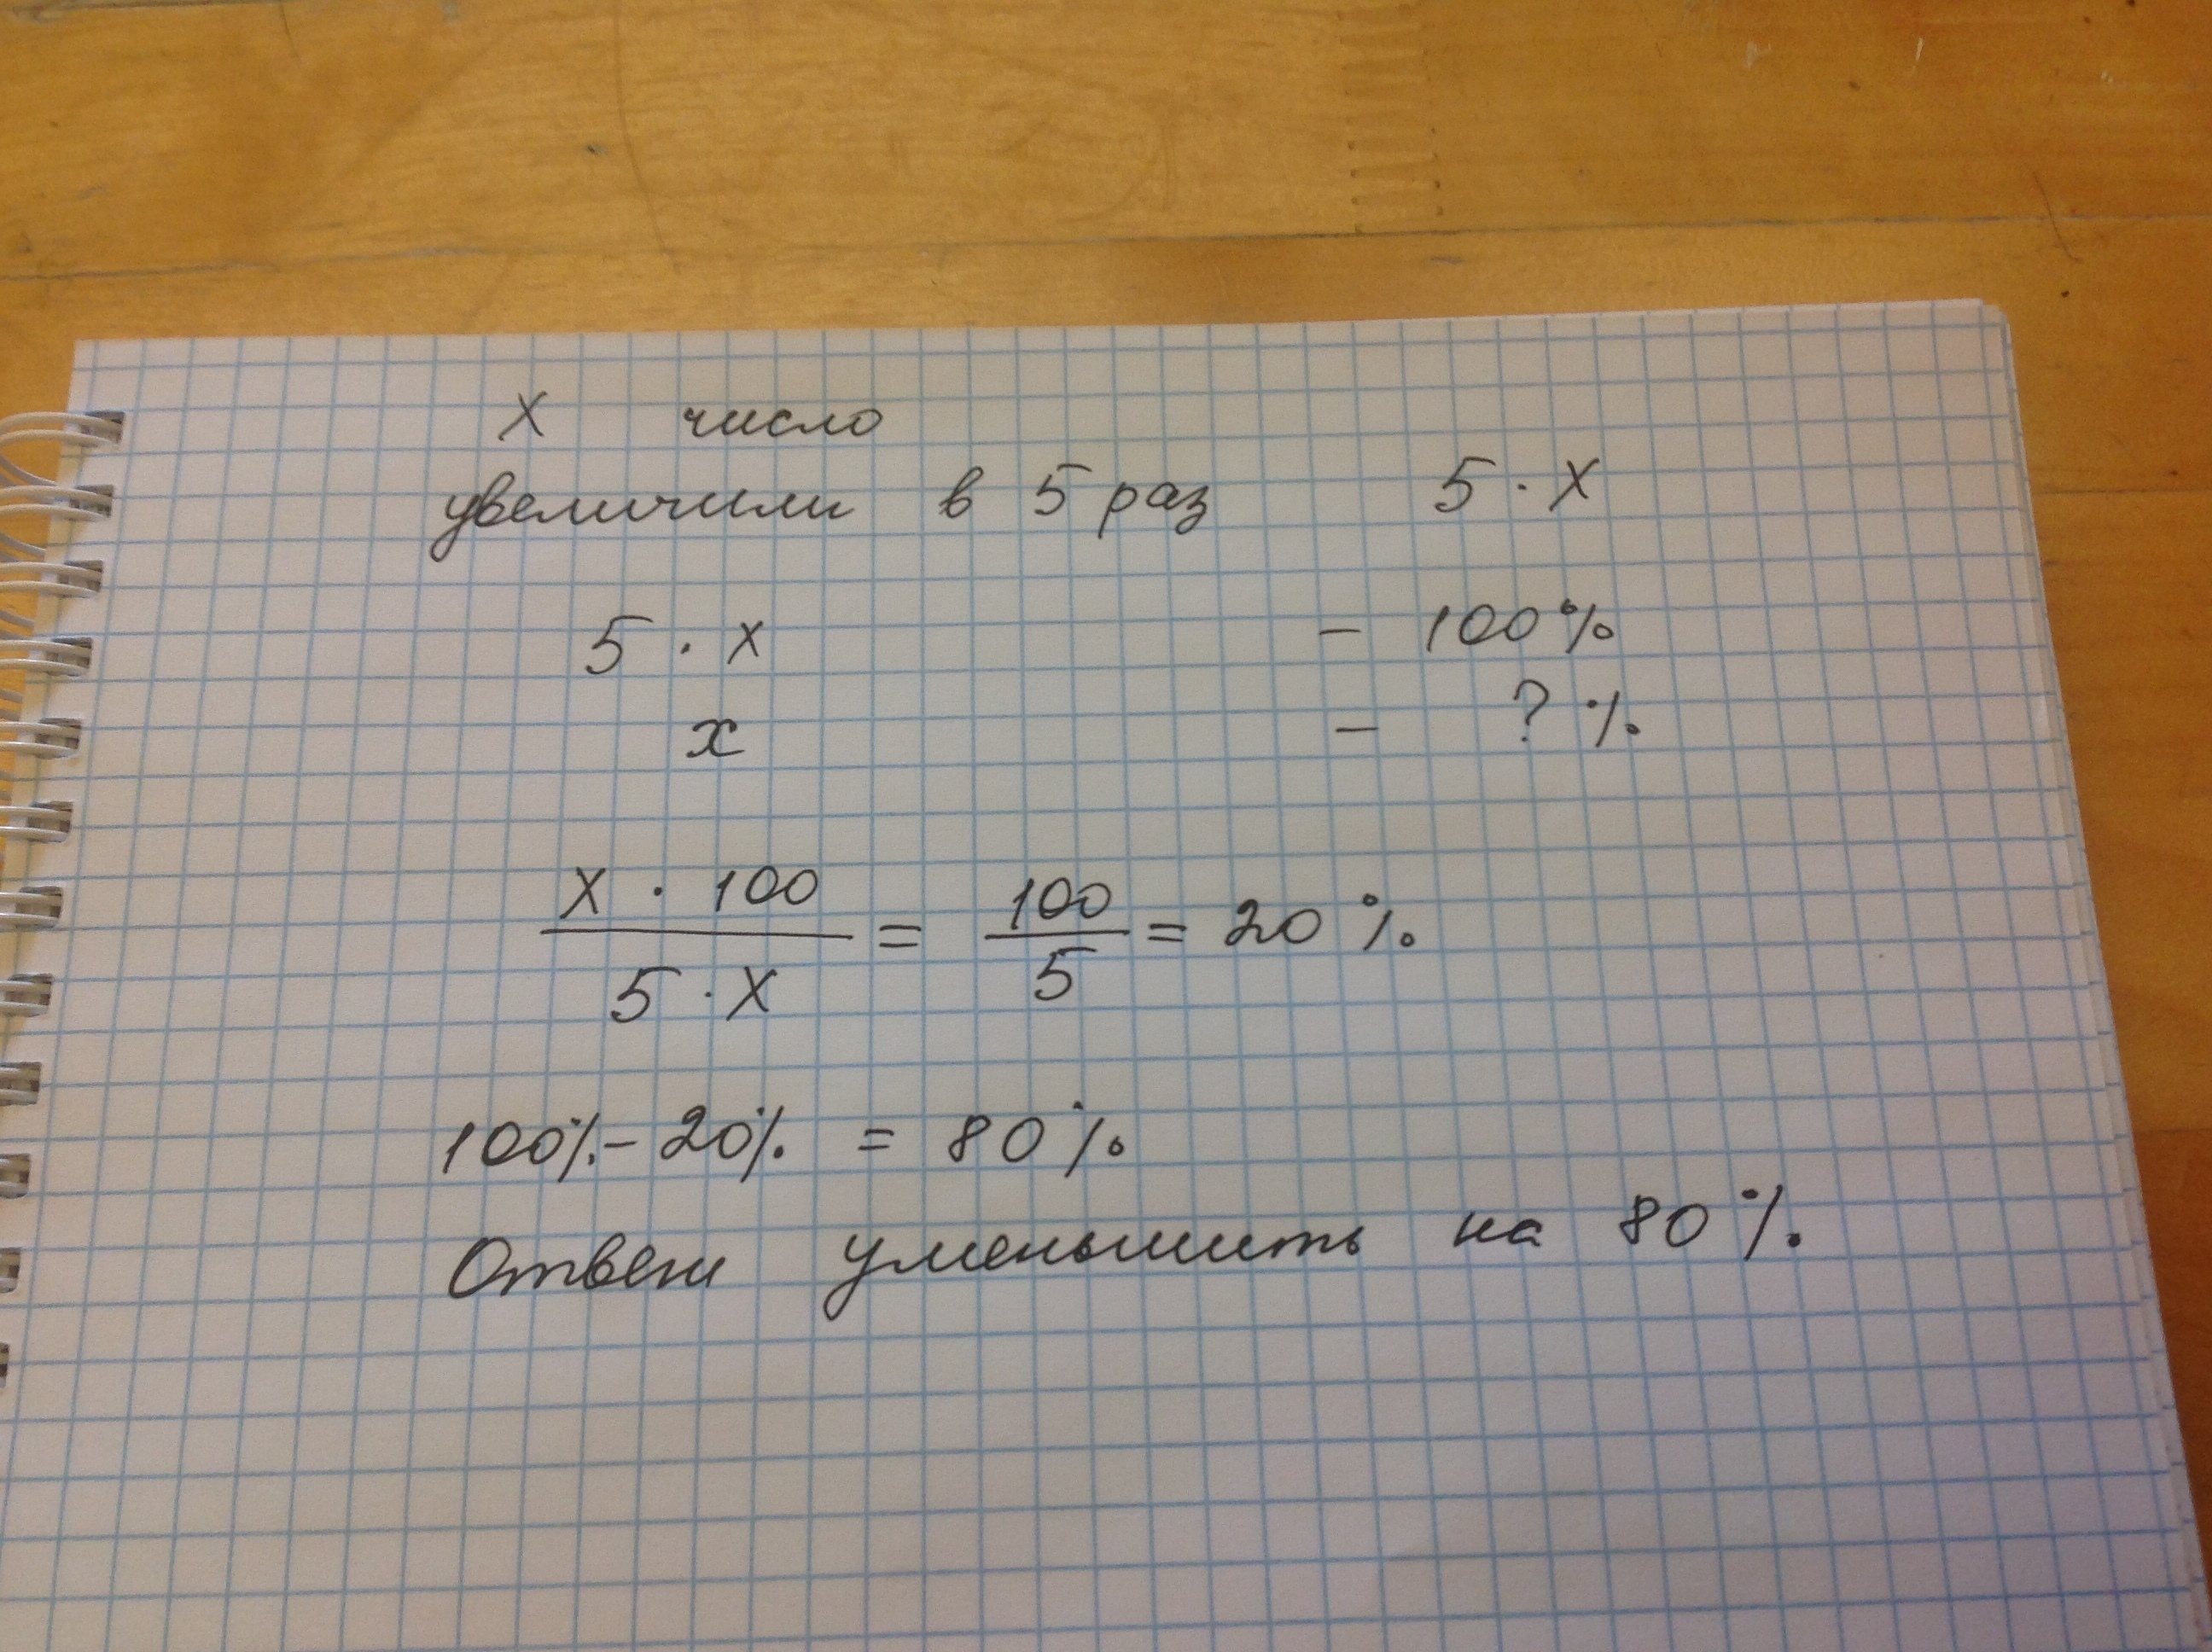 х число
увеличили в 5 раз 5 · х
5 · х – 100%
х – ? %
х · 100 / 5 · х = 100 / 5 = 20 %
100% – 20% = 80 %
Ответ уменьшить на 80 %